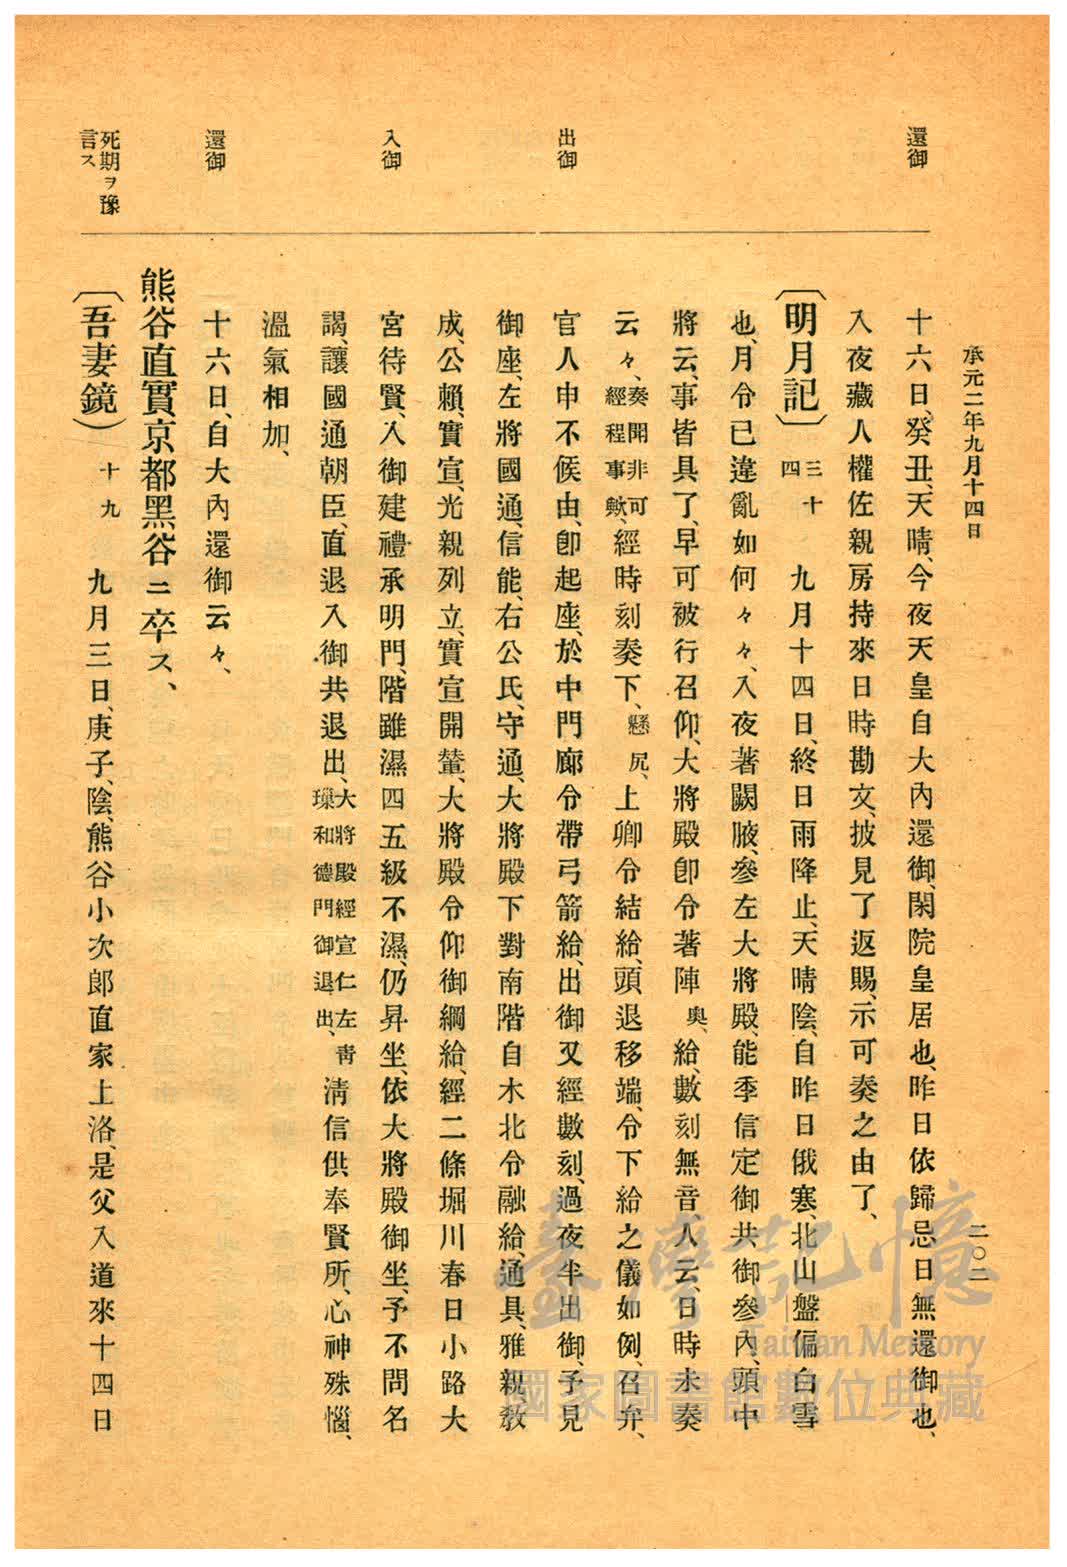 承元二年九月十四日
二〇二
還御
十六日、癸丑、天晴、今夜天皇自大內還御、閑院皇居也、昨日依歸忌日無還御也、
入夜藏人權佐親房持來日時勘文、披見了返賜、示可奏之由了、
〔明月記〕三十四 九月十四日、終日雨降止、天晴陰、自昨日俄寒、北山盤偏白雪
也、月令已違亂如何々々、入夜著闕腋、參左大將殿、能季信定御共御參內、頭中
將云、事皆具了、早可被行召仰、大將殿卽令著陣奧、給、數刻無音、人云、日時未奏
出御
云々、奏開非可經程事歟、經時刻奏下、懸尻、上卿令結給、頭退移端、令下給之儀如例、召弁、
官人申不候由、卽起座、於中門廊令帶弓箭給、出御又經數刻、過夜半出御、予見
御座、左將國通、信能、右公氏、守通、大將殿下對南階自木北令融給、通具、雅親、敎
成、公賴、實宣、光親列立、實宣開輦、大將殿令仰御綱給、經二條堀川春日小路大
入御
宮待賢、入御建禮承明門、階雖濕四五級不濕、仍昇坐、依大將殿御坐、予不問名
謁、讓國通朝臣、直退入御共退出、大將殿經宣仁左靑璅和德門御退出、淸信供奉賢所、心神殊惱、
溫氣相加、
還御
十六日、自大內還御云々、
熊谷直實、京都黑谷ニ卒ス、
死期ヲ豫言ス
〔吾妻鏡〕十九 九月三日、庚子、陰、熊谷小次郎直家上洛、是父入道來十四日
臺灣記憶
Taiwan Memory
國家圖書館數位典藏